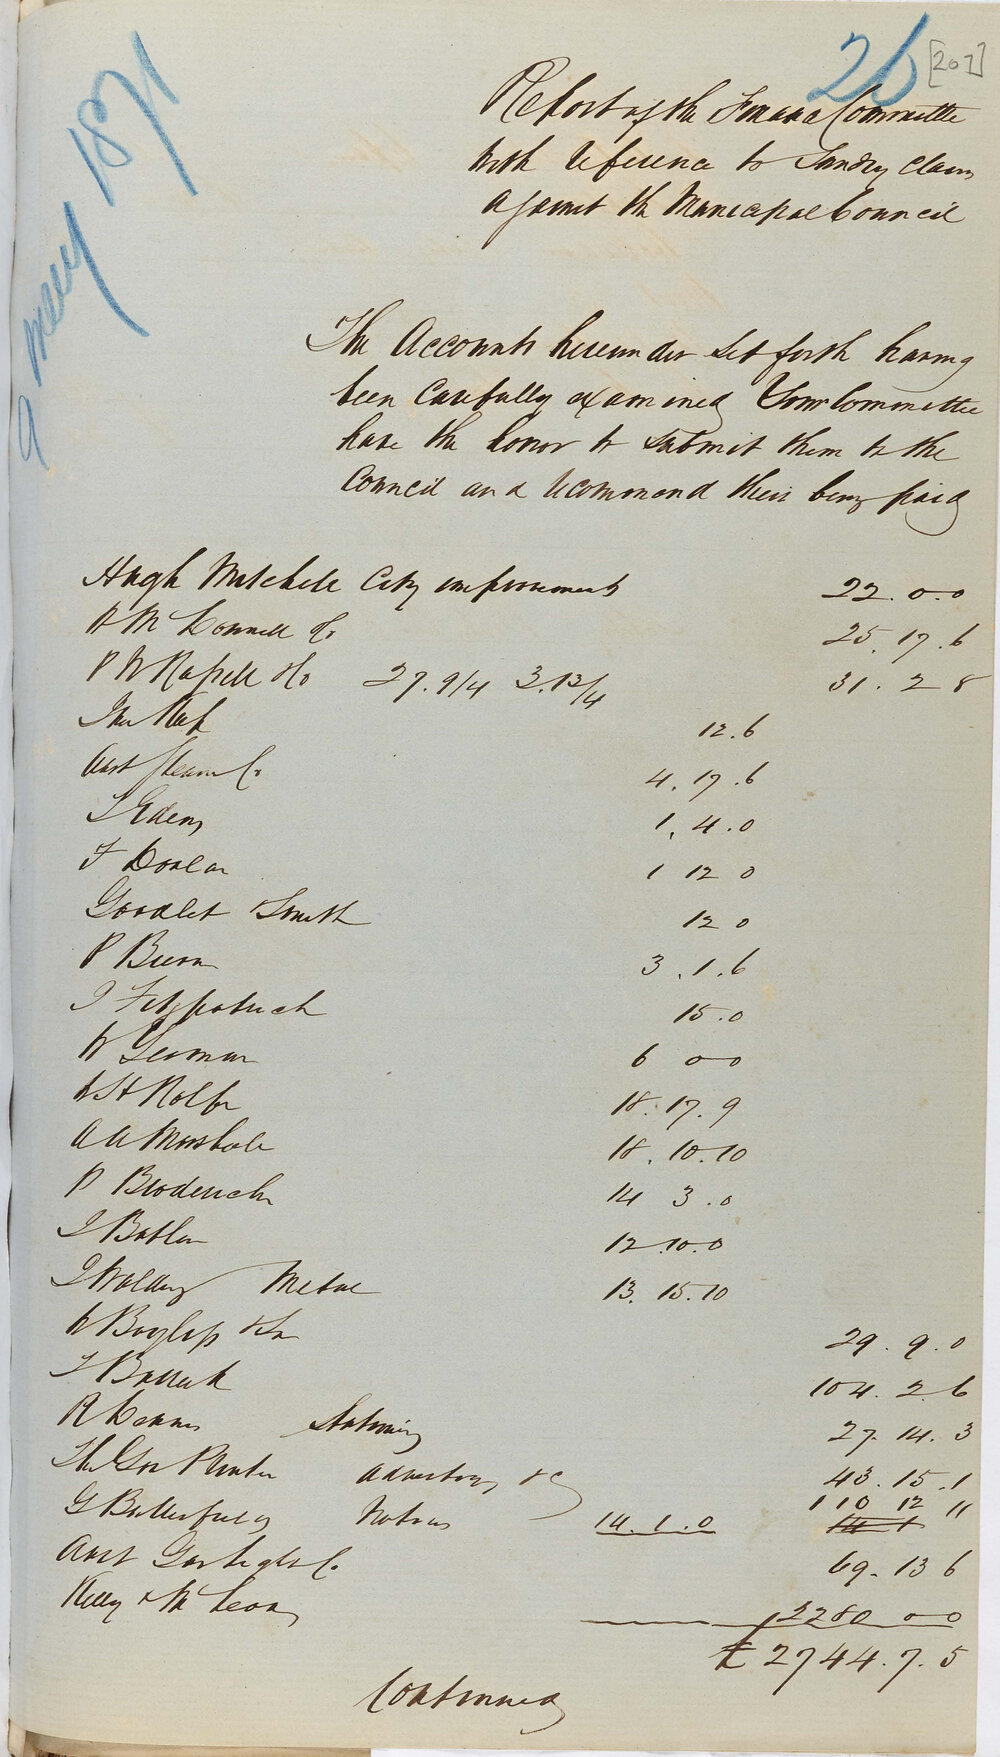 26 [207]
9 May 1871
Report of the Finance Committee
with reference to Sundry Claims
against the Municipal Council
The Accounts hereunder set forth having
been Carefully examined Your Committee
have the honor to submit them to the
Council and recommend their being paid
Hugh Mitchell City improvements 22.0.0
25.17.6
P N Russell & Co 27.9/4 3.13/4 31.2.8
12.6
Aust Steam Co 4.17.6
1.4.0
1 12 0
Goodlet & Smith 12 0
3.1.6
J Fitzpatrick 15.0
6 0 0
W H Rolfe 18.17.9
18.10.10
P Broderick 14 3.0
J Butler 12.10.0
Metal 13.15.10
29.9.0
104.2.6
Stationery 27.14.3
The Gov Printer Advertising &c 43.15.1
G Butterfield Notices 14.1.0 110 12 "
Aust Gas Light Co 69.13 6
Kelly & McLeod 2280 0 0
£2744.7.5
Continued